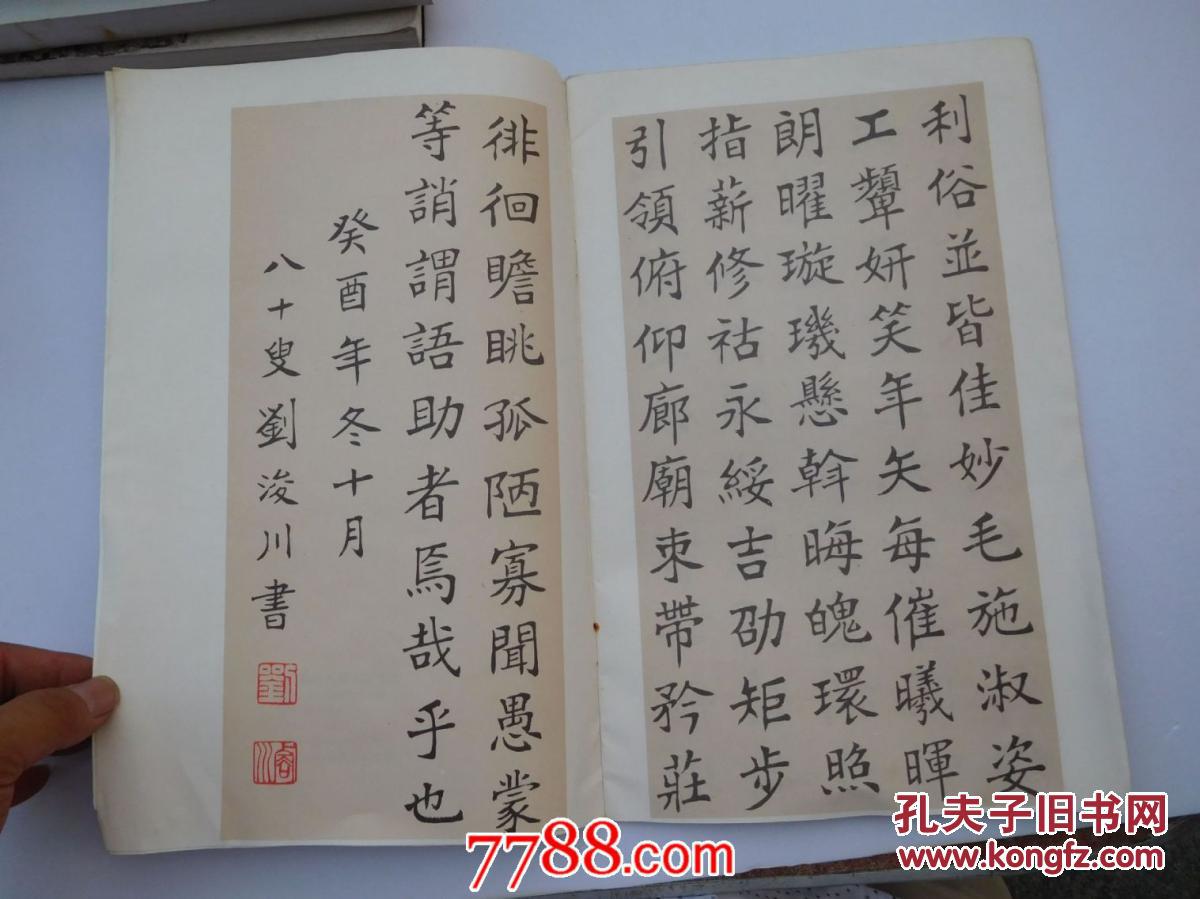 利俗並皆佳妙毛施淑姿
工顰妍笑年矢每催曦暉
朗曜璇璣懸斡晦魄環照
指薪修祜永綏吉劭矩步
引領俯仰廊廟束帶矜莊
徘徊瞻眺孤陋寡聞愚蒙
等誚謂語助者焉哉乎也
癸酉年冬十月
八十叟劉浚川書
劉
7788.com
孔夫子旧书网
www.kongfz.com